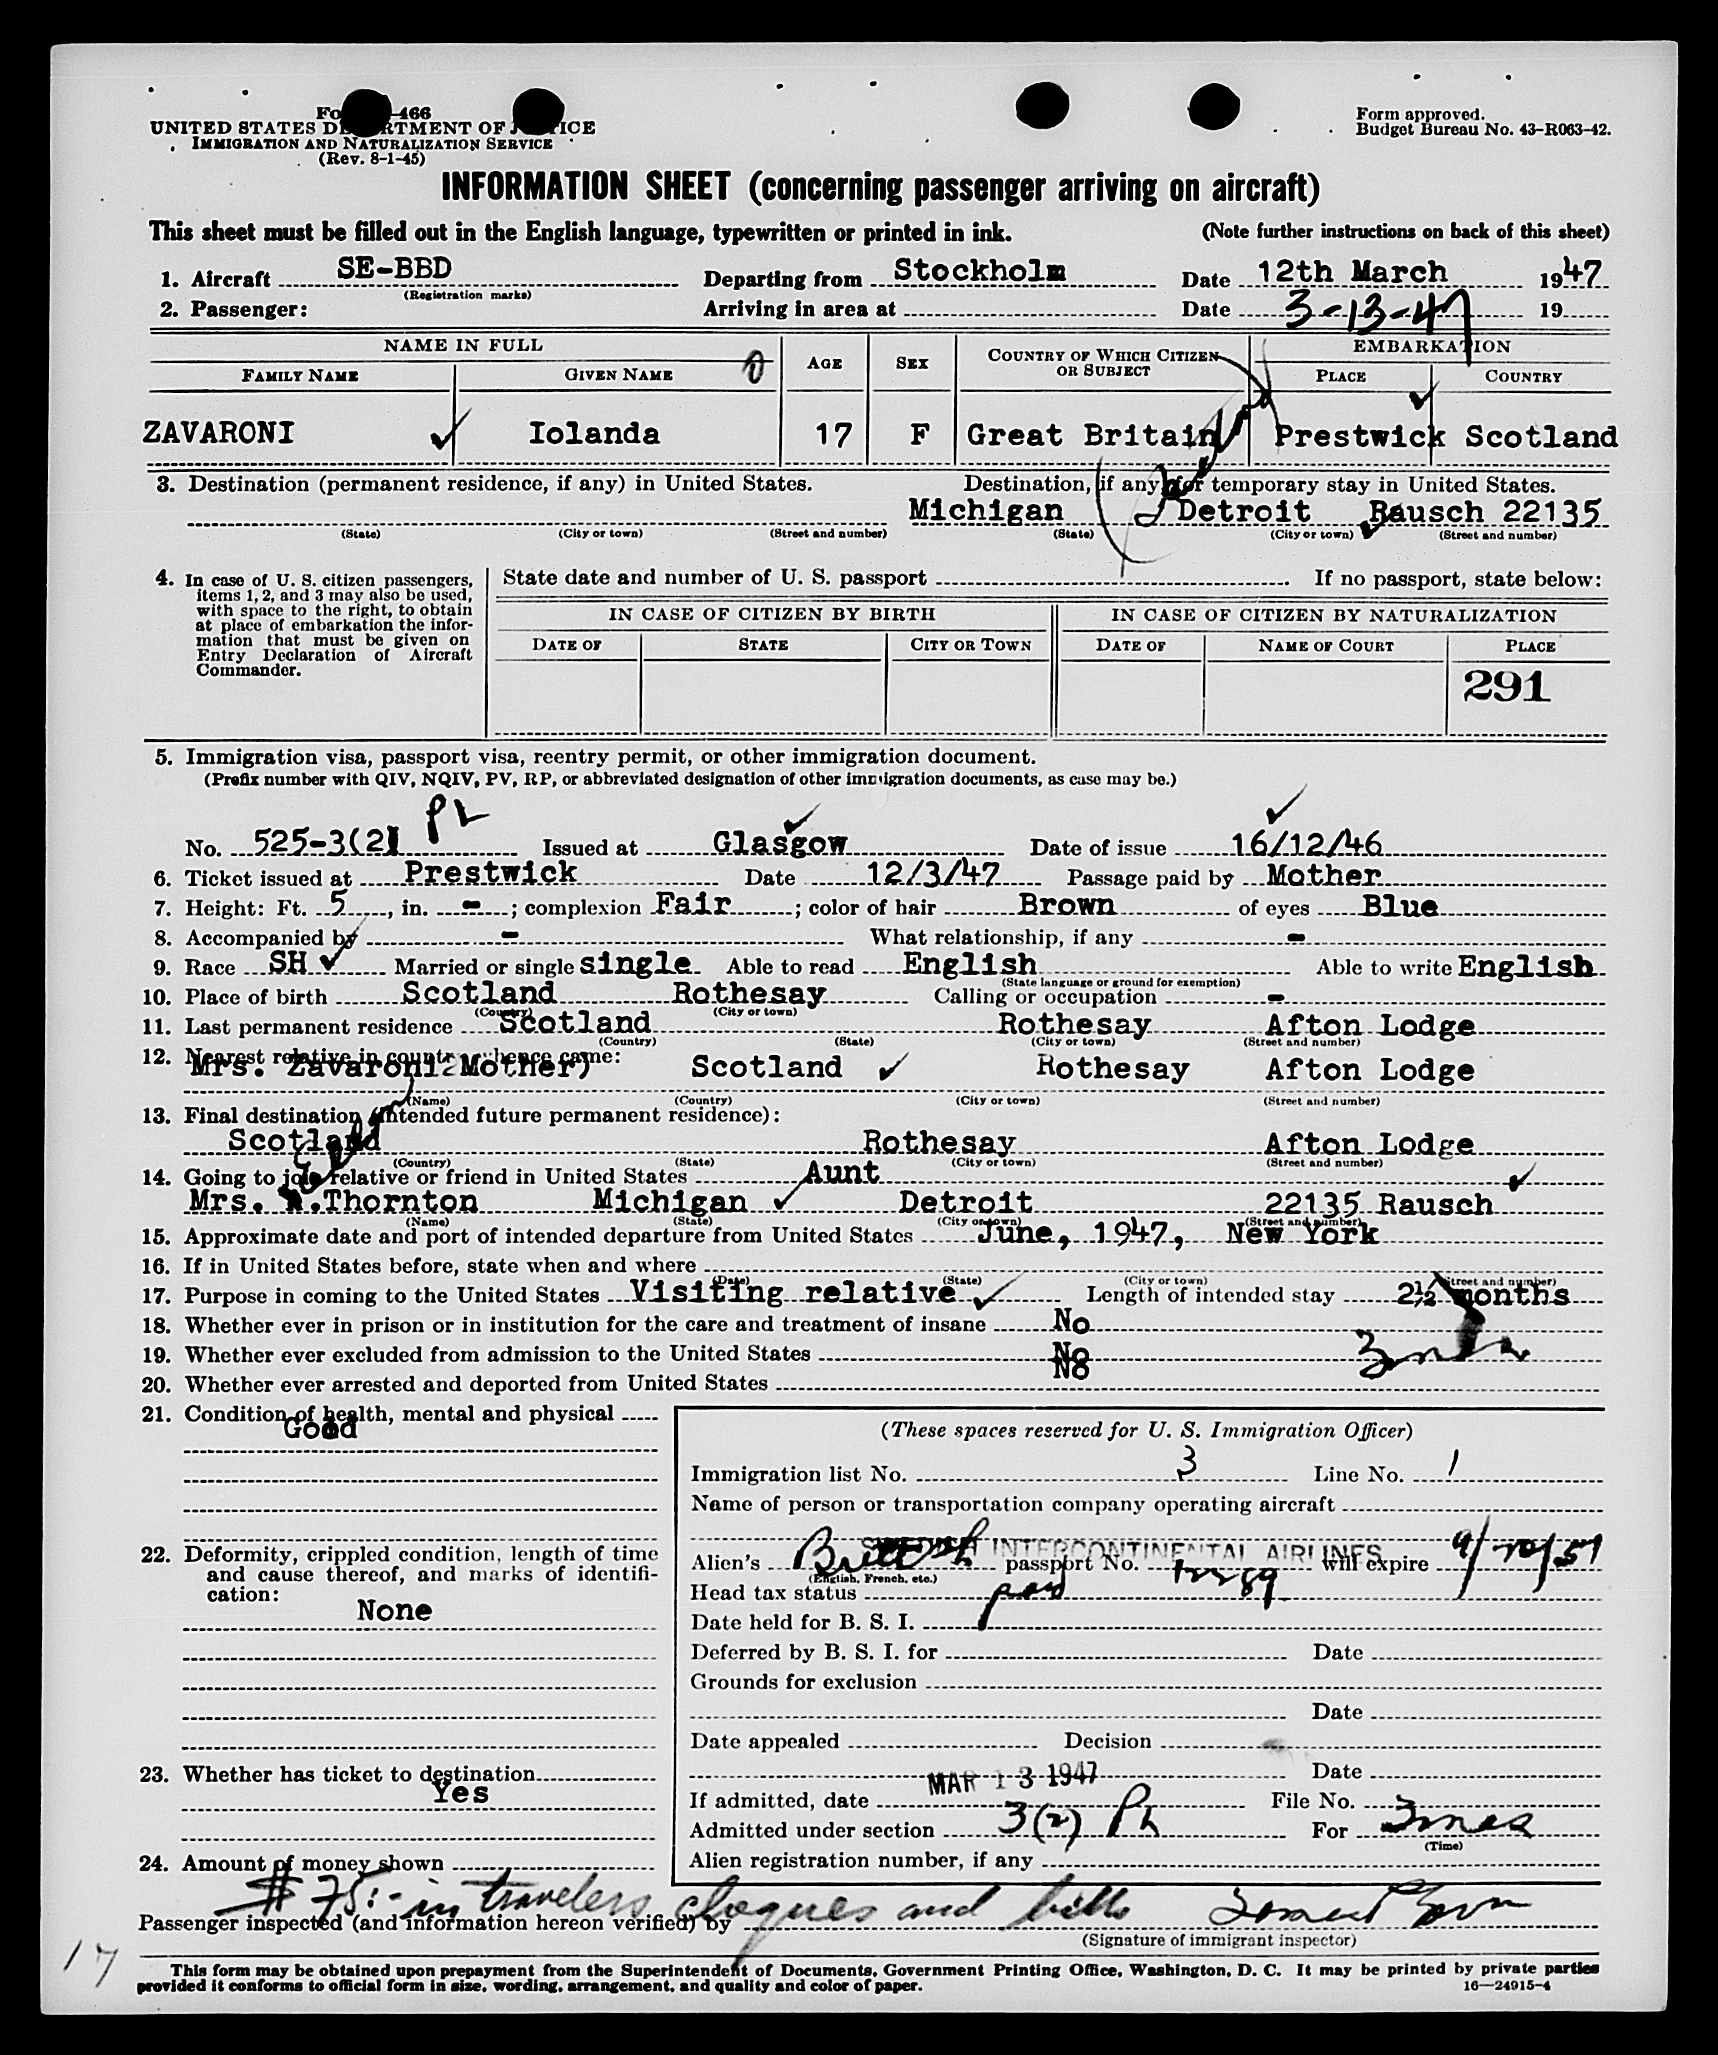 Fo -466
UNITED STATES DE RTMENT OF J ICE
IMMIGRATION AND NATURALIZATION SERVICE
(Rev. 8-1-45)
Form approved.
Budget Bureau No. 43-R063-42.
INFORMATION SHEET (concerning passenger arriving on aircraft)
This sheet must be filled out in the English language, typewritten or printed in ink. (Note further instructions on back of this sheet)
1. Aircraft SE-BBD Departing from Stockholm Date 12th March 1947
(Registration marks)
2. Passenger: Arriving in area at Date 3-13-47 19
NAME IN FULL AGE SEX COUNTRY OF WHICH CITIZEN OR SUBJECT EMBARKATION
FAMILY NAME GIVEN NAME PLACE COUNTRY
ZAVARONI Iolanda 17 F Great Britain Prestwick Scotland
3. Destination (permanent residence, if any) in United States. Destination, if any, for temporary stay in United States.
Michigan Detroit Rausch 22135
(State) (City or town) (Street and number) (State) (City or town) (Street and number)
4. In case of U. S. citizen passengers, items 1, 2, and 3 may also be used, with space to the right, to obtain at place of embarkation the information that must be given on Entry Declaration of Aircraft Commander.
State date and number of U. S. passport If no passport, state below:
IN CASE OF CITIZEN BY BIRTH IN CASE OF CITIZEN BY NATURALIZATION
DATE OF STATE CITY OR TOWN DATE OF NAME OF COURT PLACE
291
5. Immigration visa, passport visa, reentry permit, or other immigration document.
(Prefix number with QIV, NQIV, PV, RP, or abbreviated designation of other immigration documents, as case may be.)
No. 525-3(2) Issued at Glasgow Date of issue 16/12/46
6. Ticket issued at Prestwick Date 12/3/47 Passage paid by Mother
7. Height: Ft. 5, in. -; complexion Fair; color of hair Brown of eyes Blue
8. Accompanied by - What relationship, if any -
9. Race SH Married or single single Able to read English Able to write English
(State language or ground for exemption)
10. Place of birth Scotland Rothesay Calling or occupation -
(Country) (City or town)
11. Last permanent residence Scotland Rothesay Afton Lodge
(Country) (State) (City or town) (Street and number)
12. Nearest relative in country whence came:
Mrs. Zavaroni(Mother) Scotland Rothesay Afton Lodge
(Name) (Country) (City or town) (Street and number)
13. Final destination (intended future permanent residence):
Scotland Rothesay Afton Lodge
(Country) (State) (City or town) (Street and number)
14. Going to join relative or friend in United States Aunt
Mrs. .Thornton Michigan Detroit 22135 Rausch
(Name) (State) (City or town) (Street and number)
15. Approximate date and port of intended departure from United States June, 1947, New York
16. If in United States before, state when and where
(Date) (State) (City or town) (Street and number)
17. Purpose in coming to the United States Visiting relative Length of intended stay 2½ months
18. Whether ever in prison or in institution for the care and treatment of insane No
19. Whether ever excluded from admission to the United States No
20. Whether ever arrested and deported from United States No
21. Condition of health, mental and physical
Good
(These spaces reserved for U. S. Immigration Officer)
Immigration list No. 3 Line No. 1
Name of person or transportation company operating aircraft
SWEDISH INTERCONTINENTAL AIRLINES
22. Deformity, crippled condition, length of time and cause thereof, and marks of identification:
None
Alien's British passport No. will expire 9/10/51
(English, French, etc.)
Head tax status
Date held for B. S. I.
Deferred by B. S. I. for Date
Grounds for exclusion
Date
Date appealed Decision
23. Whether has ticket to destination
Yes
Date
If admitted, date MAR 13 1947 File No.
Admitted under section 3(2) For 3 mos
(Time)
24. Amount of money shown
Alien registration number, if any
$75:- in travelers cheques and bills
Passenger inspected (and information hereon verified) by
(Signature of immigrant inspector)
17
This form may be obtained upon prepayment from the Superintendent of Documents, Government Printing Office, Washington, D. C. It may be printed by private parties
provided it conforms to official form in size, wording, arrangement, and quality and color of paper. 16—24915-4